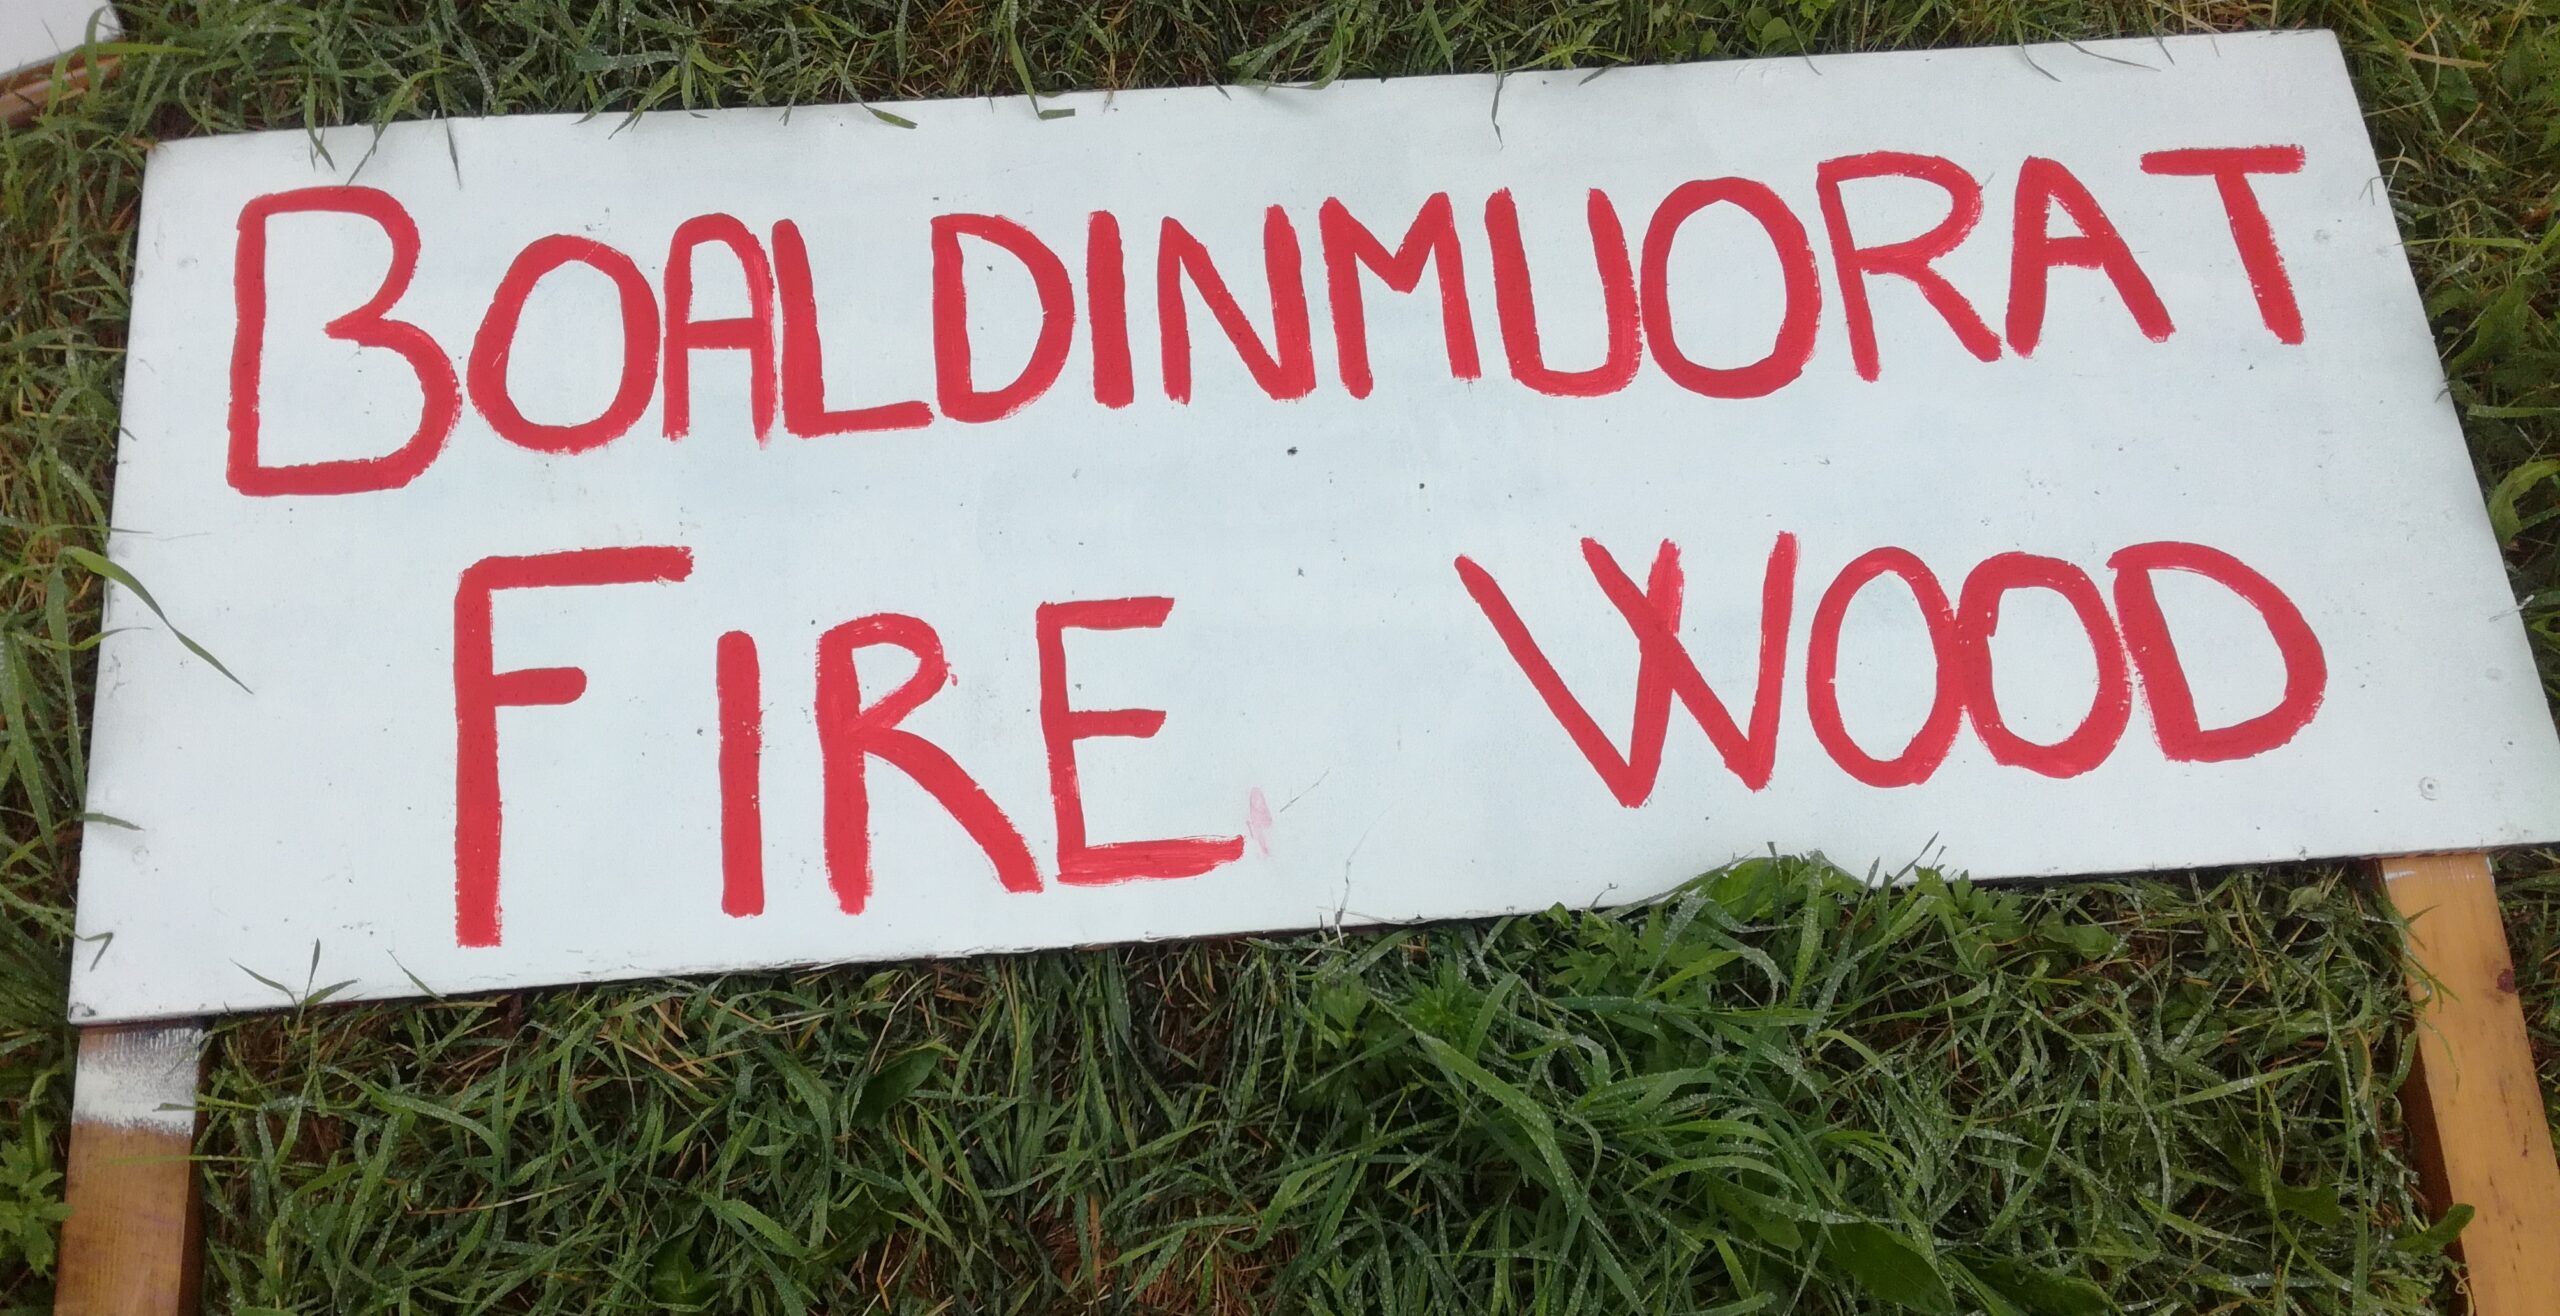 BOALDINMUORAT
FIRE WOOD